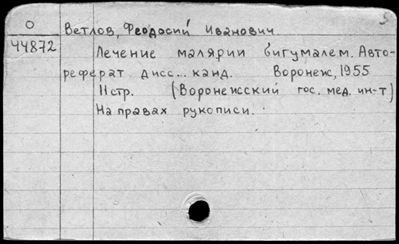 О
Ветлов, Феодосий Иванович
44872
Лечение малярии бигумалем. Авто-
реферат дисс... канд. Воронеж, 1955
11стр. (Воронежский гос. мед. ин-т)
На правах рукописи.